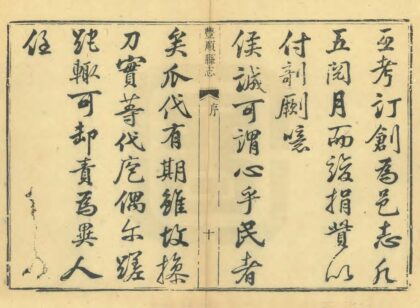 亟考訂創為邑志凡
五閱月而竣捐貲以
付剞劂噫
侯誠可謂心乎民者
豐順縣志
序
十
矣瓜代有期雖故操
刀實等代庖偶尔蹉
跎輒可卸責為異人
任